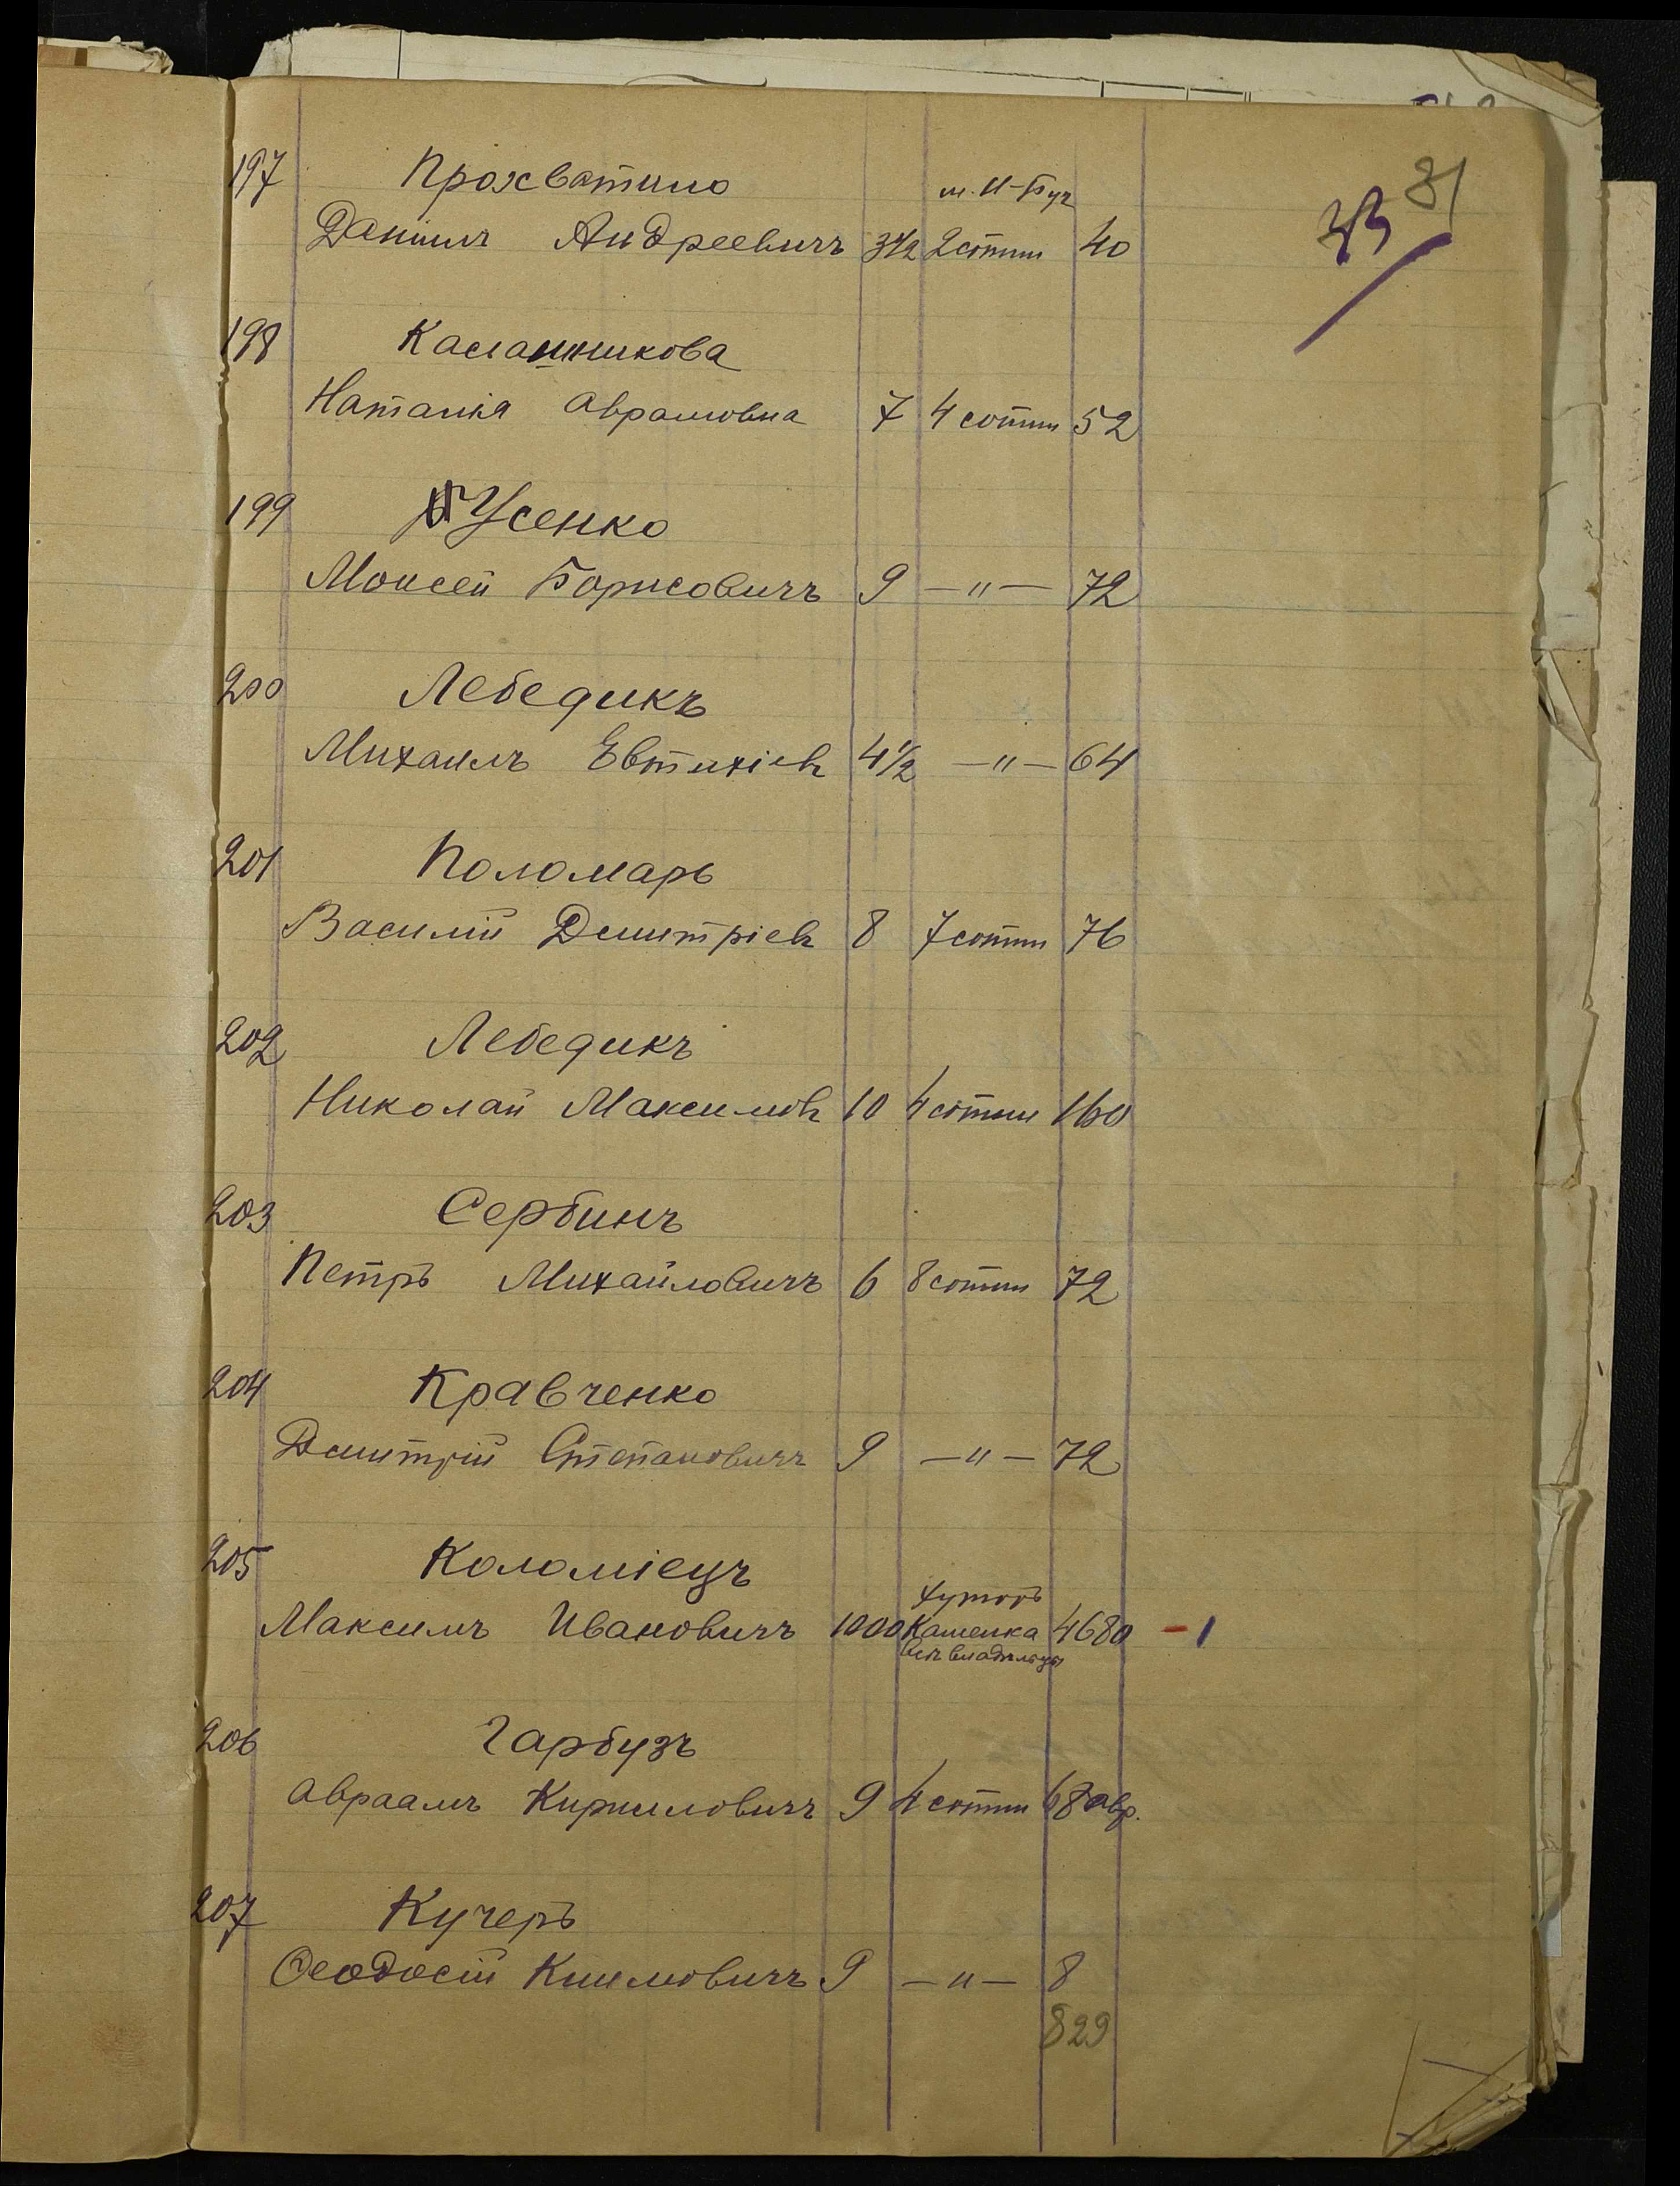 31
33
197 Прохватило м. Н-Буг
Данiилъ Андреевичъ 3 1/2 2 сотни 40
198 Касланникова
Наталiя Аврамовна 7 4 сотни 52
199 Усенко
Моисей Борисовичъ 9 —"— 72
200 Лебедикъ
Михаилъ Евтихiев 4 1/2 —"— 64
201 Поломарь
Василiй Дмитрiев 8 7 сотни 76
202 Лебедикъ
Николай Максимов 10 4 сотни 160
203 Сербинъ
Петръ Михайловичъ 6 8 сотни 72
204 Кравченко
Дмитрiй Степановичъ 9 —"— 72
205 Коломiецъ хуторъ
Максимъ Ивановичъ 1000 Каменка 4680 - 1
владѣльцы
206 Гарбузъ
Авраамъ Кирилловичъ 9 4 сотни 68
207 Кучеръ
Ѳеодосiй Климовичъ 9 —"— 8
829